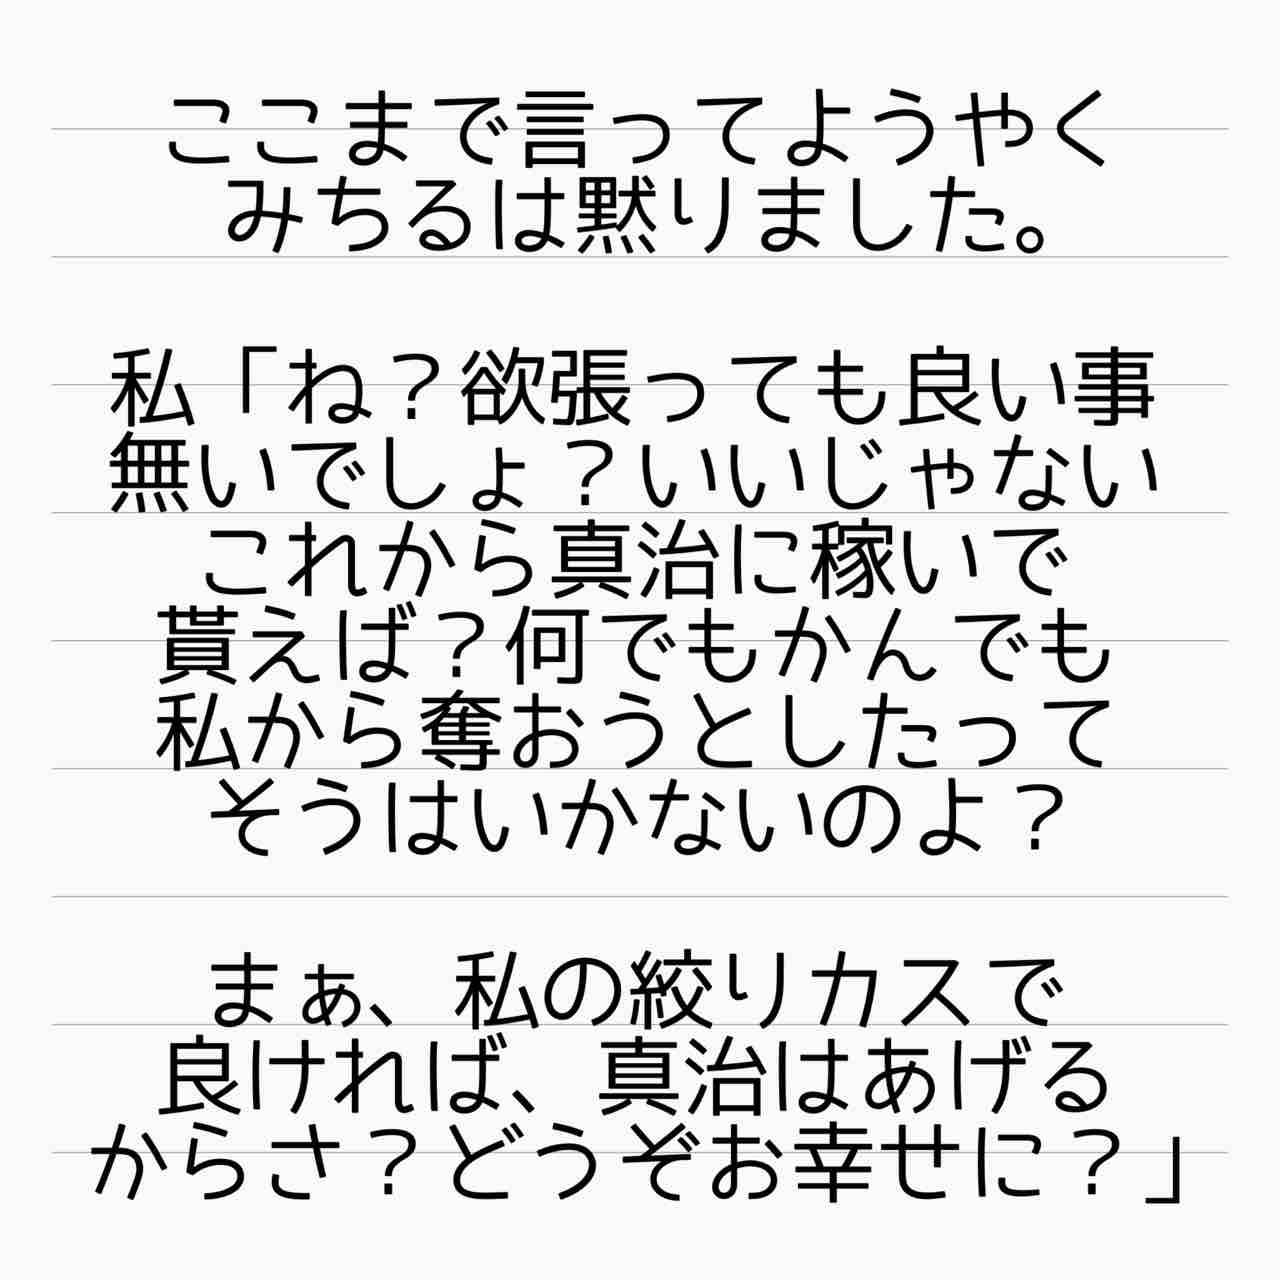 ここまで言ってようやく
みちるは黙りました。
私「ね？欲張っても良い事
無いでしょ？いいじゃない
これから真治に稼いで
貰えば？何でもかんでも
私から奪おうとしたって
そうはいかないのよ？
まぁ、私の絞りカスで
良ければ、真治はあげる
からさ？どうぞお幸せに？」